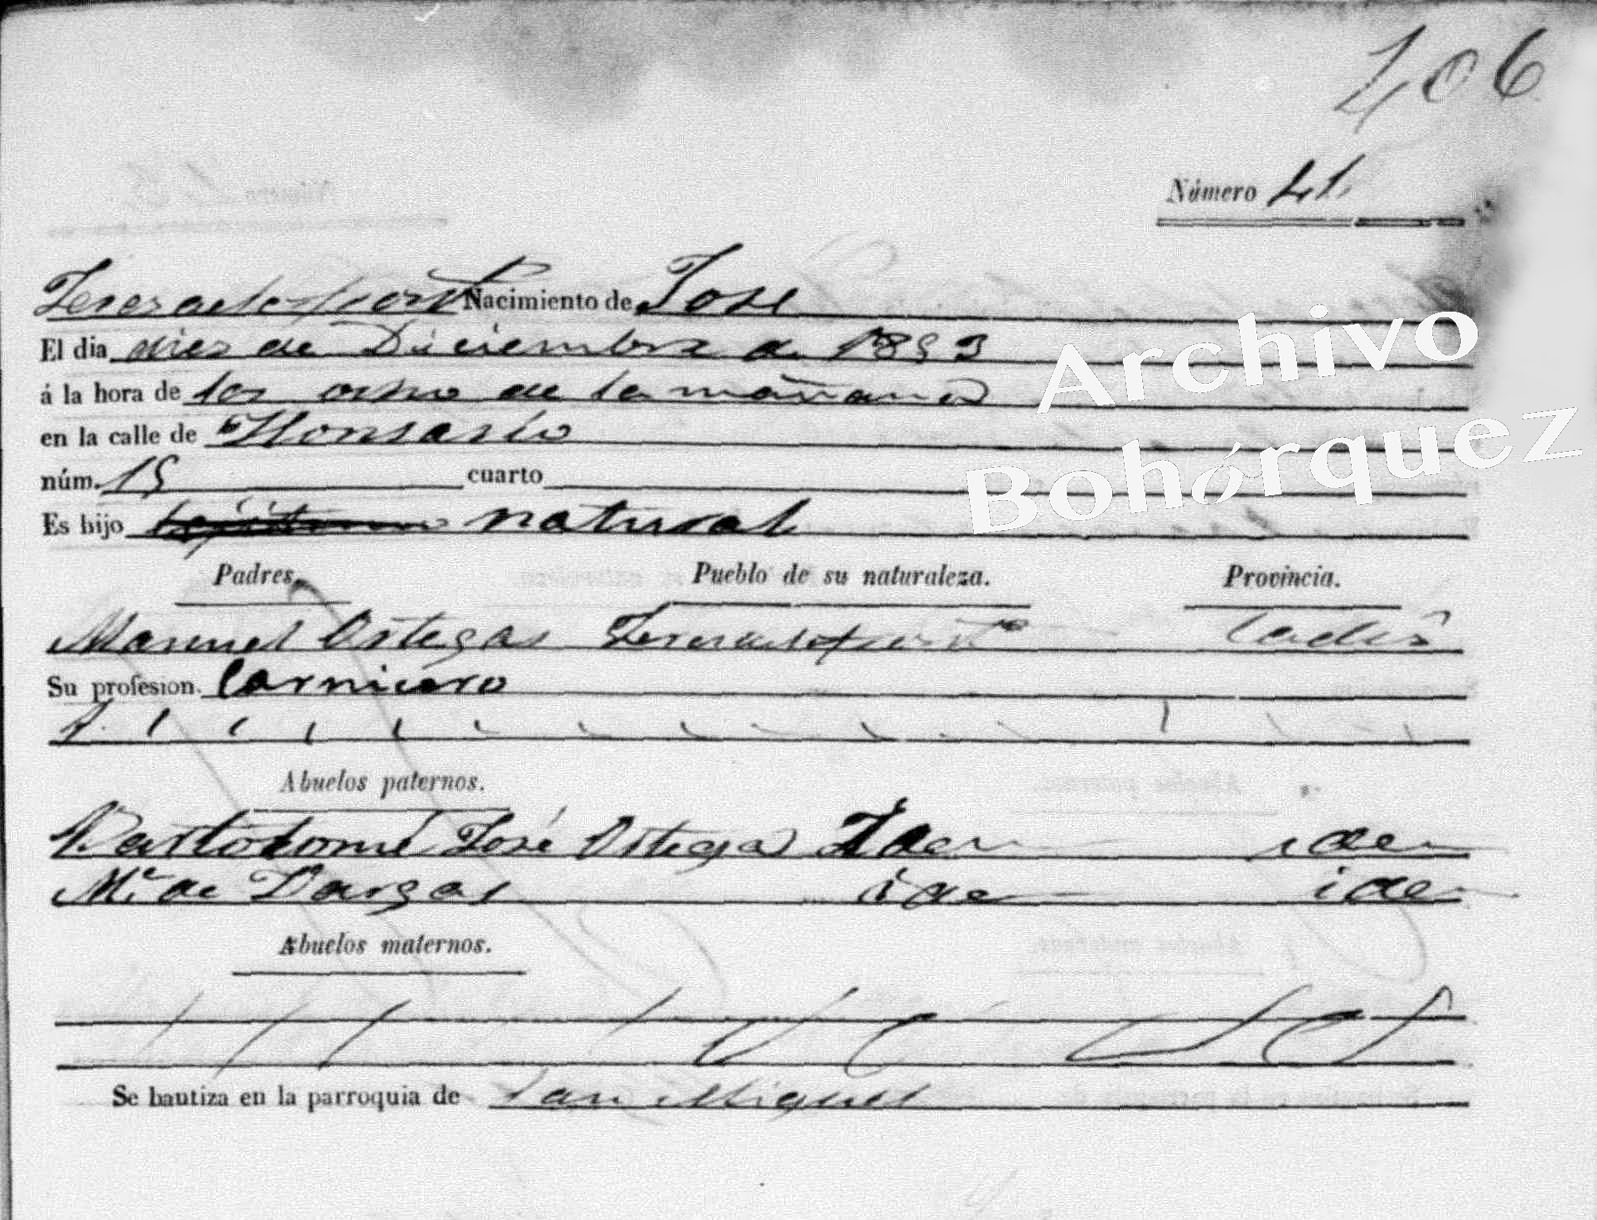 406
Número 41.
Jerez de la Front Nacimiento de José
El dia diez de Diciembre de 1853
á la hora de las ocho de la mañana
en la calle de Honsario
núm. 15 cuarto
Es hijo legitimo natural
Padres. Pueblo de su naturaleza. Provincia.
Manuel Ortegas Jerez de la Front.ª Cadiz
Su profesion. Carnicero
Abuelos paternos.
Bartolomé José Ortega Iden iden
M.ª de Vargas iden iden
Abuelos maternos.
Se bautiza en la parroquia de San Miguel
Archivo
Bohórquez